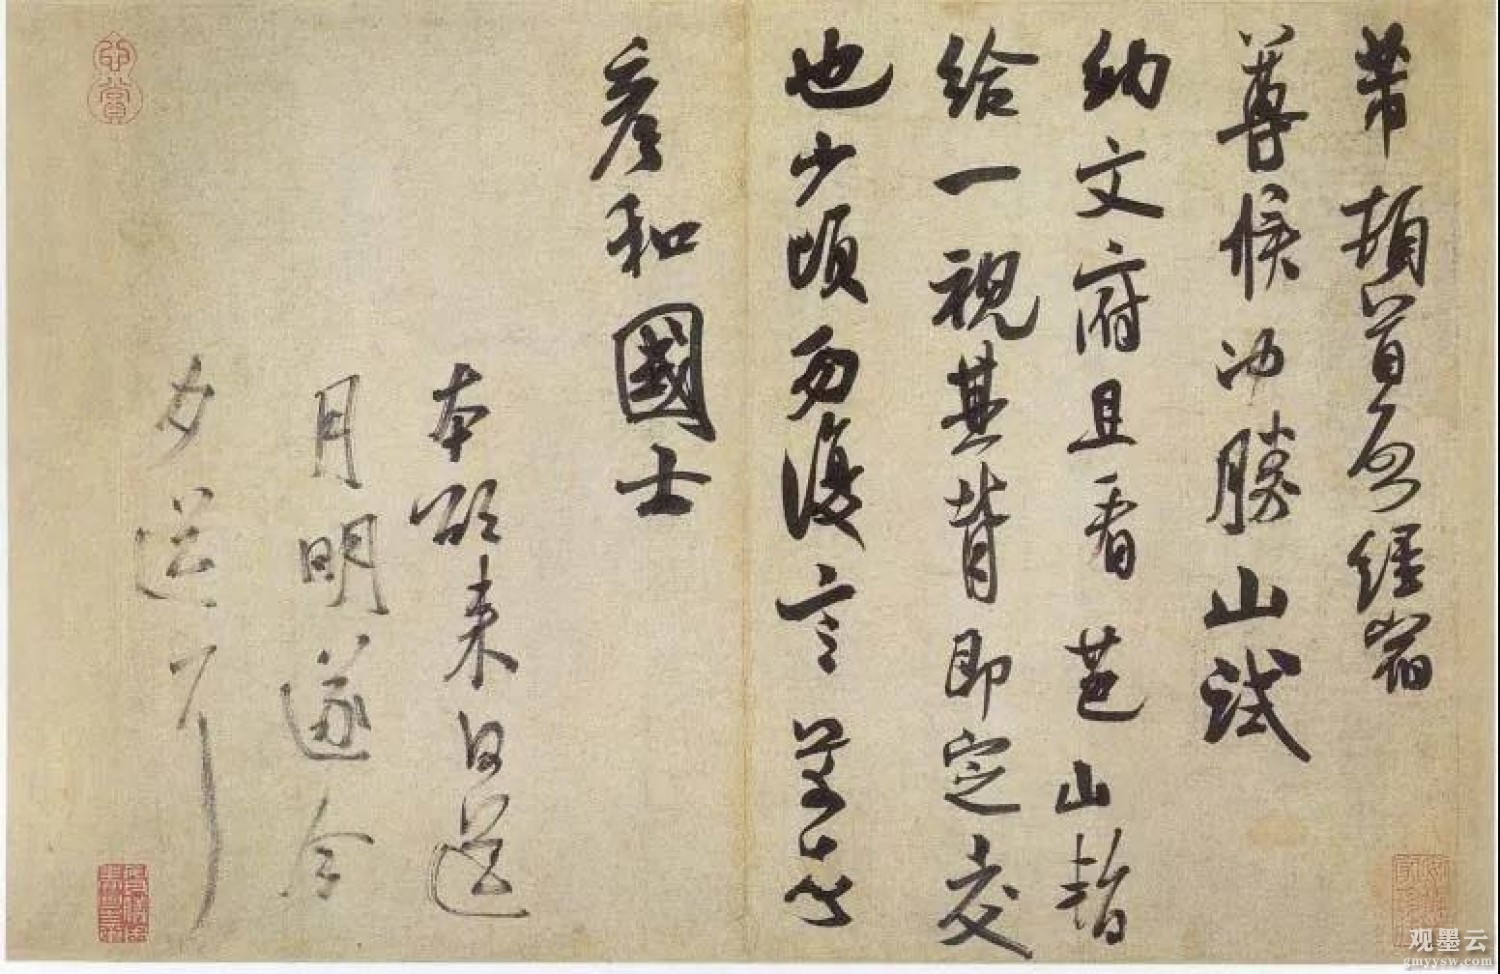 芾頓首啓經宿
尊候沖勝山試
納文府且看芭山暫
給一視其背即定交
也少頃勿復言芾頓首
彥和國士
本欲來日送
月明遂今
夕送耳
心賞
观墨云
gmyysw.com